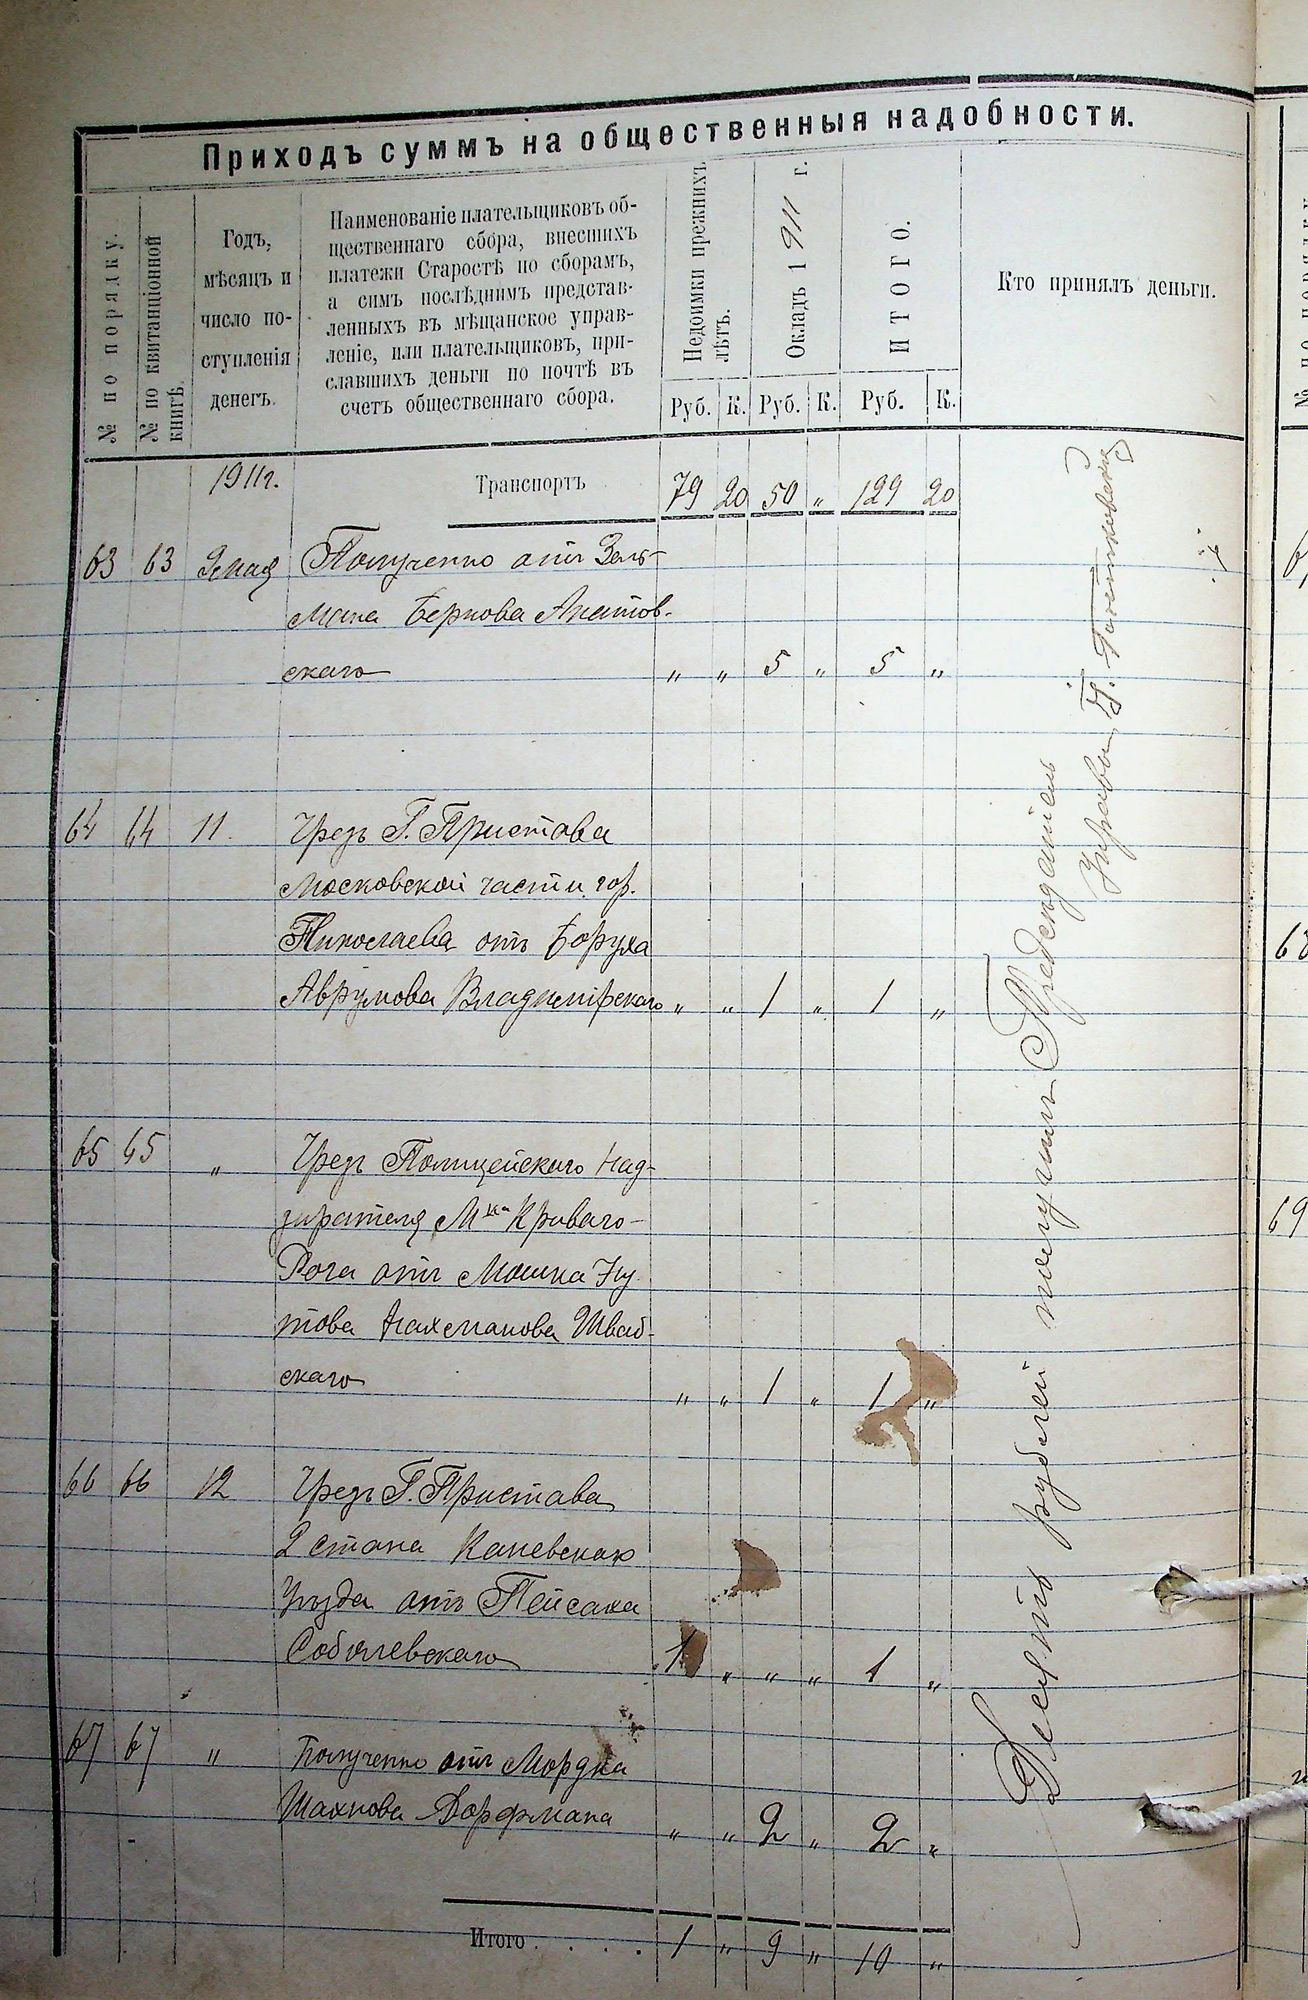 Приходъ суммъ на общественныя надобности.
№ по порядку.
№ по квитанціонной
книгѣ.
Годъ,
мѣсяцъ и
число по-
ступленія
денегъ.
Наименованіе плательщиковъ об-
щественнаго сбора, внесшихъ
платежи Старостѣ по сборамъ,
а симъ послѣднимъ представ-
ленныхъ въ мѣщанское управ-
леніе, или плательщиковъ, при-
славшихъ деньги по почтѣ въ
счетъ общественнаго сбора.
Недоимки прежнихъ
лѣтъ.
Окладъ 1911 г.
ИТОГО.
Кто принялъ деньги.
Руб. К. Руб. К. Руб. К.
1911г. Транспортъ 79 20 50 „ 129 20
63 63 2 мая Полученно отъ Зель-
мана Беркова Ахатов-
скаго „ „ 5 „ 5 „
64 64 11. Чрезъ Г. Пристава
Московской части гор.
Николаева отъ Боруха
Аврумова Владимірскаго „ „ 1 „ 1 „
65 65 „ Чрезъ Полицейскаго Над-
зирателя М ка Криваго-
Рога отъ Мошка Ну
това Нахманова Шваб-
скаго „ „ 1 „ 1 „
66 66 12 Чрезъ Г. Пристава
2 стана Каневскаго
Уѣзда отъ Пейсаха
Соболевскаго 1 „ „ „ 1 „
67 67 „ Полученно отъ Мордка
Шахнова Дорфмана „ „ 2 „ 2 „
Итого . . . . 1 „ 9 „ 10 „
Десять рублей получилъ Предсѣдатель
Управы